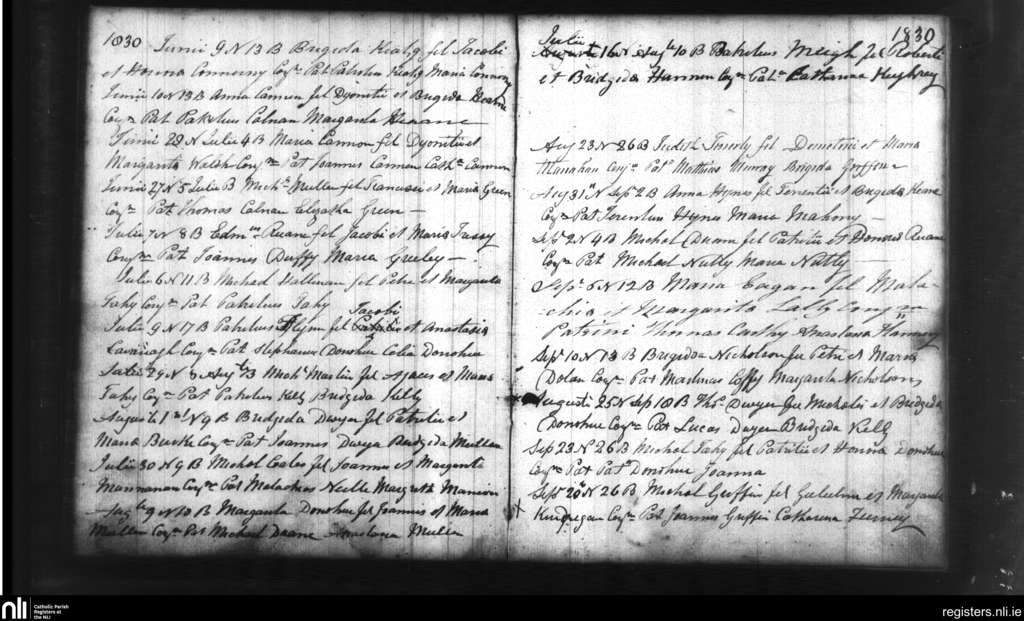 1830
Junii 9 N 13 B Brigida Healy fil Jacobi
et Honora Conmony Coyn Pat Patritius Healy Maria Conmony
Junii 10 N 13 B Anna Cannon fil Dyonitii et Brigida Keane
Coyn Pat Patritius Calnan Margarita Keane
Junii 28 N Julii 4 B Maria Cannon fil Dyonitii et
Margarita Walsh Coyn Pat Joannes Cannon Cath Cannon
Junii 27 N 5 Julii B Mich Mullen fil Francisci et Maria Green
Coyn Pat Thomas Calnan Green
Julii 7 N 8 B Edm Ruane fil Jacobi et Maria
Coyn Pat Joannes Duffy Maria Greeley
Julii 6 N 11 B Michael fil Petri et Margarita
Fahy Coyn Pat Patritius Fahy
Jacobi
Julii 9 N 17 B Patritius Flynn fil et Anastasia
Cavanagh Coyn Pat Stephanus Donohue Celia Donohue
Julii 29 N Aug 3 B Mich Martin fil et Maria
Fahy Coyn Pat Patritius Kelly Bridgida Kelly
Augusti 1 N 9 B Bridgida Dwyer fil Patritii et
Maria Burke Coyn Pat Joannes Dwyer Bridgida Mullen
Julii 30 N 9 B Michael Coales fil Joannes et Margarita
Mannanan Coyn Pat Malachias Neille
Aug 9 N 10 B Margarita Donohue fil Joannis et Maria
Mullen Coyn Pat Michael Duane Mullen
1830
Julii
16 N Aug 10 B Patritius Meigh fil Roberti
et Bridgida Hannon Coyn Pat Catharina Hughray
Aug 23 N 26 B Judith fil Demetrii et Maria
Manahan Coyn Pat Matthias Murray Brigida Griffin
Aug 31 N Sep 2 B Anna Hynes fil Terentii et Brigida Keane
Coyn Pat Terentius Hynes Maria Mahony
Sep 2 N 4 B Michael Duane fil Patritii et Honora Ruane
Coyn Pat Michael Nally Maria Nally
Sept 5 N 12 B Maria Eagan fil Mala-
chia et Margarita Lally conj
Patrini Thomas Anastasia
Sep 10 N 13 B Brigida Nicholson fil Petri et Maria
Dolan Coyn Pat Martinus Coffy Margarita Nicholson
Augusti 25 N Sep 18 B Tho Dwyer fil Michaelis et Bridgida
Donohue Coyn Pat Lucas Dwyer Bridgida Kelly
Sep 23 N 26 B Michael Fahy fil Patritii et Honora Donohue
Coyn Pat Pat Donohue Joanna
Sept 20 N 26 B Michael Griffin fil Gulielmi et Margarita
Coyn Pat Joannes Griffin Catharina
nli
Catholic Parish
Registers at
the NLI
registers.nli.ie